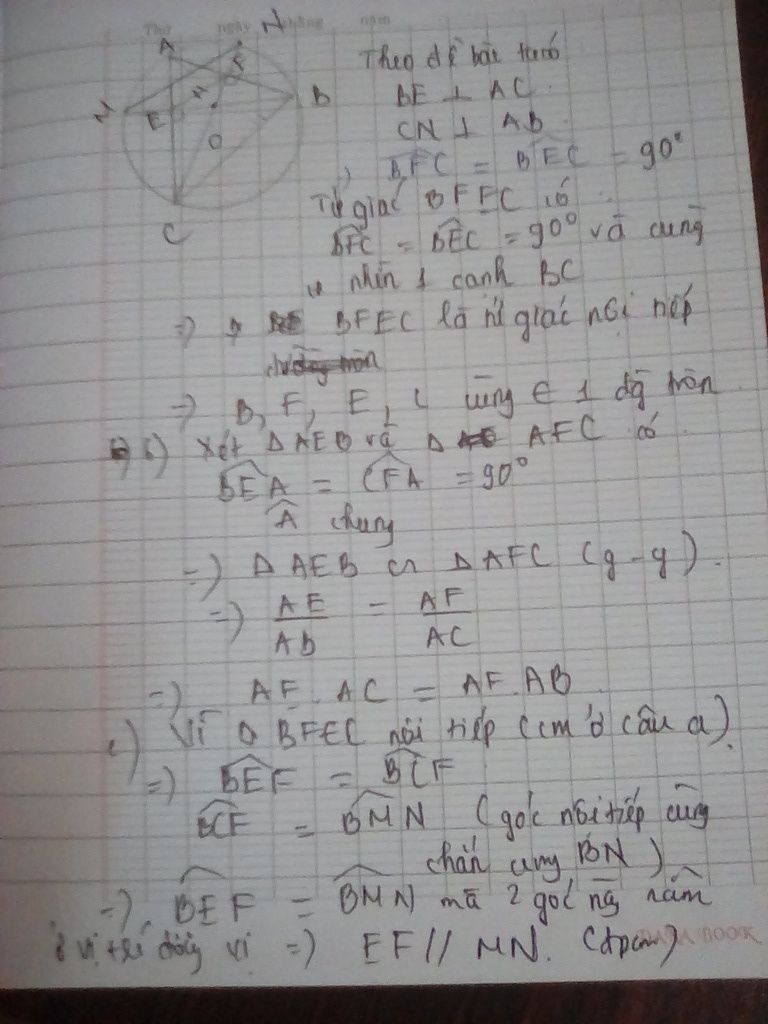 N
A
M
E
H
B
O
C
Theo đề bài ta có
BE ⊥ AC.
CN ⊥ AB
BFC = BEC = 90°
Tứ giác BFEC có
BFC = BEC = 90° và cùng
nhìn 1 cạnh BC
=> BFEC là tứ giác nội tiếp
=> B, F, E, C cùng ∈ 1 đg tròn
b) Xét Δ AEB và Δ AFC có
BEA = CFA = 90°
A chung
=> Δ AEB ∽ Δ AFC (g-g).
=> AE/AB = AF/AC
=> AE.AC = AF.AB
c) Vì BFEC nội tiếp (cm ở câu a).
=> BEF = BCF
BCF = BMN (góc nội tiếp cùng
chắn cung BN)
=> BEF = BMN mà 2 góc này nằm
ở vị trí đồng vị => EF // MN. (đpcm)
BOOK